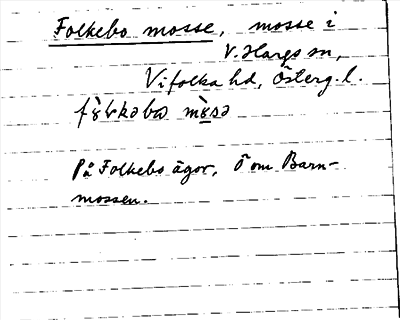 Folkebo mosse, mosse i
V. Hargs sn,
Vifolka hd, Österg. l.
På Folkebo ägor, Ö om Barn-
mossen.